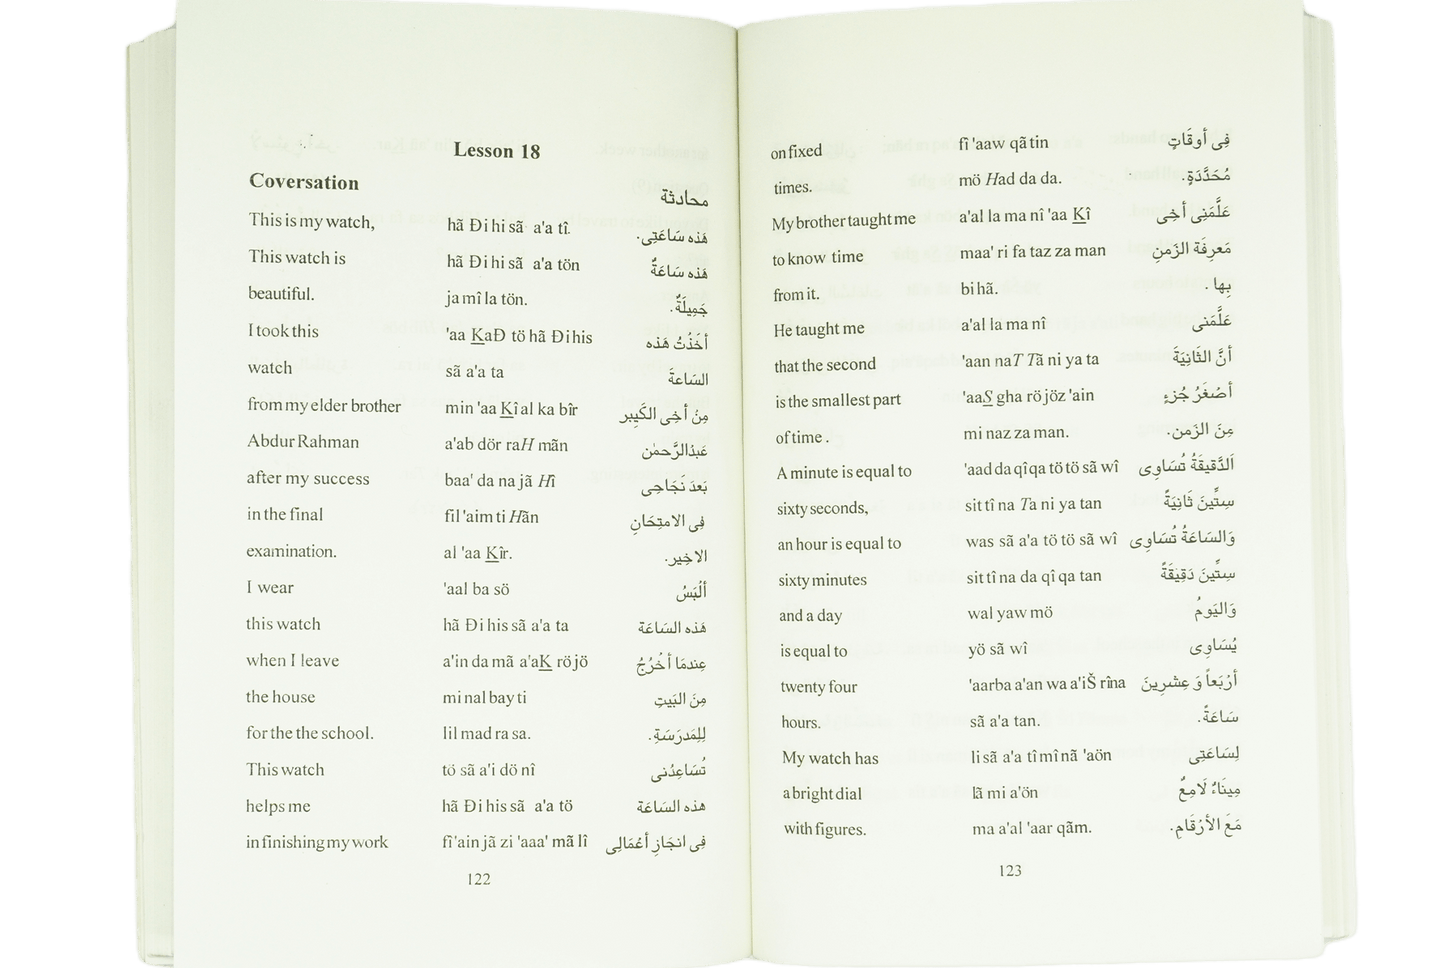 Lesson 18
Coversation محادثة
This is my watch, hã Đi hi sã a'a tî. هَذه سَاعَتِى.
This watch is hã Đi hi sã a'a tön هَذه سَاعَةٌ
beautiful. ja mî la tön. جَمِيلَةٌ.
I took this 'aa KaĐ tö hã Đi his أخَذْتُ هَذه
watch sã a'a ta السَاعةَ
from my elder brother min 'aa Kî al ka bîr مِنْ أخِى الكَبِير
Abdur Rahman a'ab dör raH mãn عَبدُالرَّحمٰن
after my success baa' da na jã Hî بَعدَ نَجَاحِى
in the final fil 'aim ti Hãn فِى الامتِحَانِ
examination. al 'aa Kîr. الاخِير.
I wear 'aal ba sö ألْبَسُ
this watch hã Đi his sã a'a ta هَذه السَاعَة
when I leave a'in da mã a'aK rö jö عِندمَا أخْرُجُ
the house mi nal bay ti مِنَ البَيتِ
for the the school. lil mad ra sa. لِلِمَدرَسَةِ.
This watch tö sã a'i dö nî تُسَاعِدُنى
helps me hã Đi his sã a'a tö هذه السَاعَة
in finishing my work fî 'ain jã zi 'aaa' mã lî فِى انجَازِ أعْمَالِى
122
on fixed fî 'aaw qã tin فِى أوقَاتٍ
times. mö Had da da. مُحَدَّدَةٍ.
My brother taught me a'al la ma nî 'aa Kî عَلَّمَنِى أخِى
to know time maa' ri fa taz za man مَعرِفَة الزَمنِ
from it. bi hã. بِها .
He taught me a'al la ma nî عَلَّمَنى
that the second 'aan naT Tã ni ya ta أنَّ الثَانِيَةَ
is the smallest part 'aaS gha rö jöz 'ain أصْغَرُ جُزءٍ
of time . mi naz za man. مِنَ الزَمن.
A minute is equal to 'aad da qî qa tö tö sã wî اَلدَّقيقَةُ تُسَاوِى
sixty seconds, sit tî na Ta ni ya tan سِتِّينَ ثَانِيَةً
an hour is equal to was sã a'a tö tö sã wî وَالسَاعَةُ تُسَاوِى
sixty minutes sit tî na da qî qa tan سِتِّينَ دَقِيقَةً
and a day wal yaw mö وَاليَومُ
is equal to yö sã wî يُسَاوِى
twenty four 'aarba a'an wa a'iŠ rîna أرْبَعاً وَ عِشرِينَ
hours. sã a'a tan. سَاعَةً.
My watch has li sã a'a tî mî nã 'aön لِسَاعَتِى
a bright dial lã mi a'ön مِينَاءٌ لَامِعٌ
with figures. ma a'al 'aar qãm. مَعَ الأرْقَام.
123